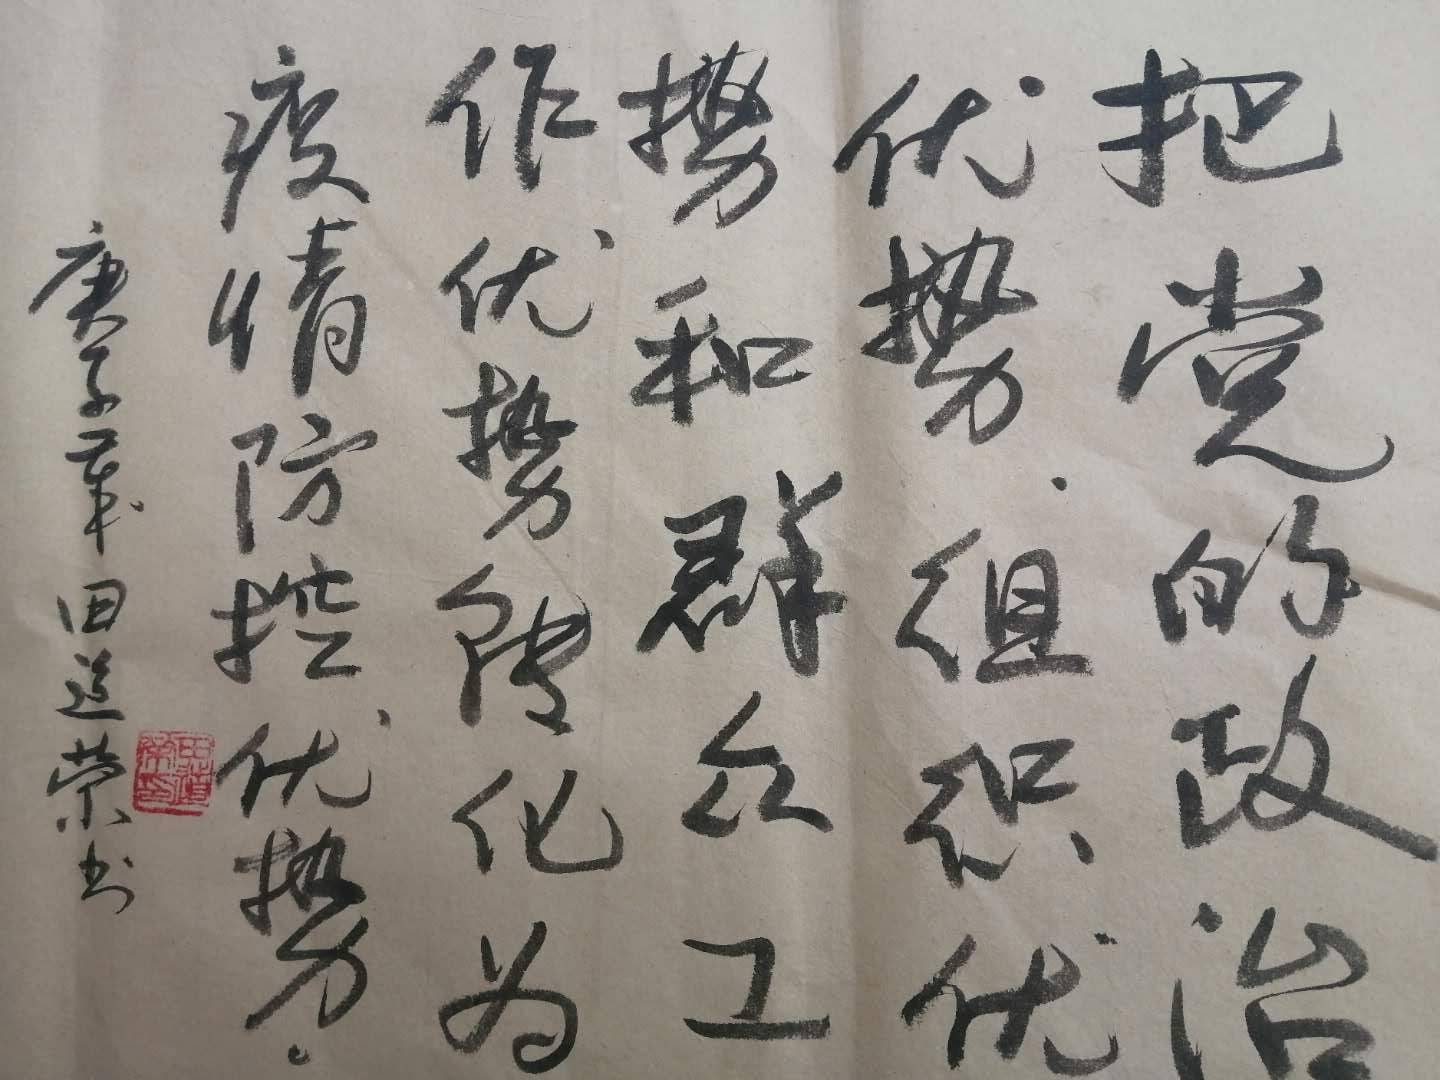 把党的政治
优势、组织优
势和群众工
作优势转化为
疫情防控优势。
庚子 田道荣书
田道荣印